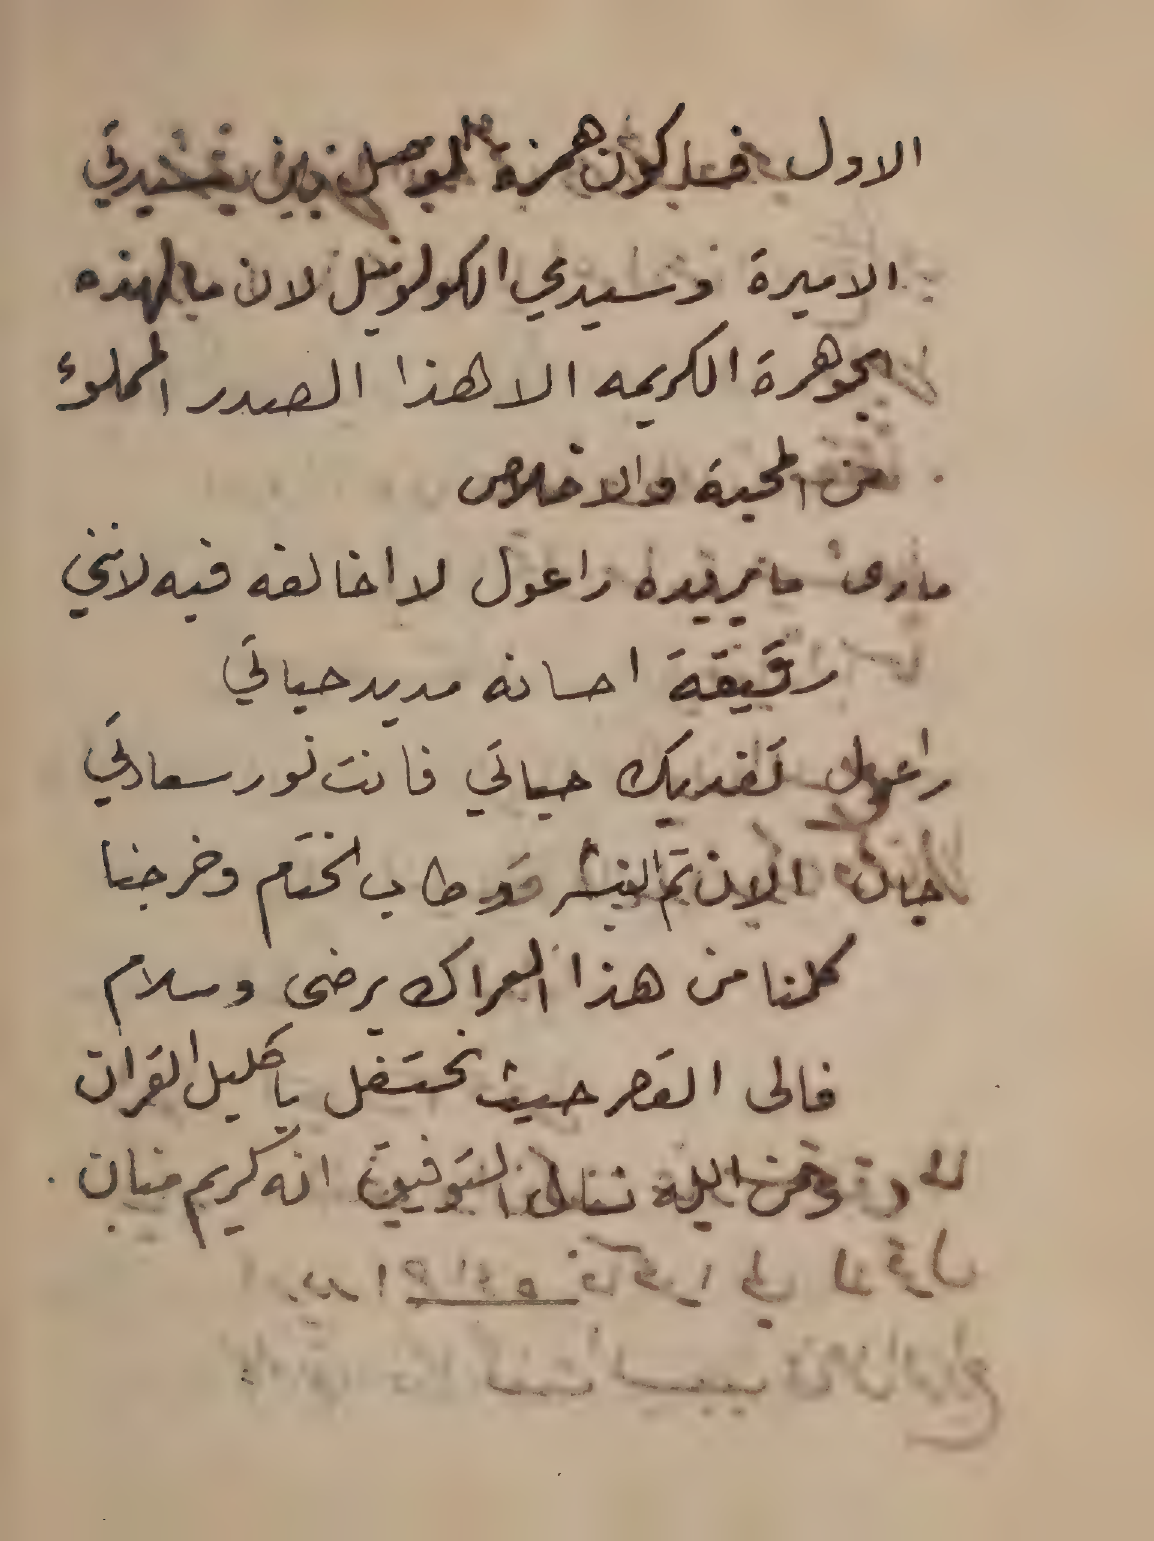 الاول فساكون همزة الوصل بين سيدتي
الاميرة وسيدي الكولونيل لان ما لهذه
الجوهرة الكريمه الا هذا الصدر المملوء
من المحبة والاخلاص
ماري ما يريده راعول لا اخالفه فيه لانني
رقيقة احسانه مديد حياتي
راعول تفديك حياتي فانت نور سعادتي
جان الان تم البشر وطاب الختام وخرجنا
كلنا من هذا العراك برضى وسلام
فالى القصر حيث نحتفل باكليل القران
ومن الله نسال التوفيق انه كريم منان